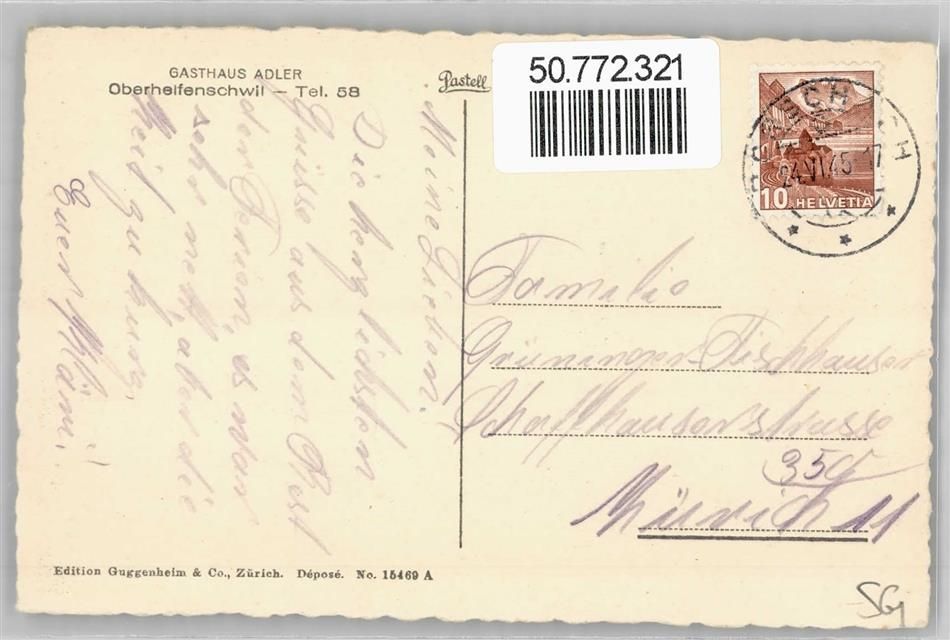 GASTHAUS ADLER
Oberhelfenschwil — Tel. 58
Pastell
50.772.321
24.VI.45-17
10 HELVETIA
Meine Lieben!
Die herzlichsten
Grüsse aus dem Rest
der Ferien, es war
sehr nett, aber die
Zeit zu kurz,
Euer
Familie
Grüninger-Fischhauser
Schaffhauserstrasse
359
Zürich 11
Edition Guggenheim & Co., Zürich. Déposé. No. 15469 A
SG